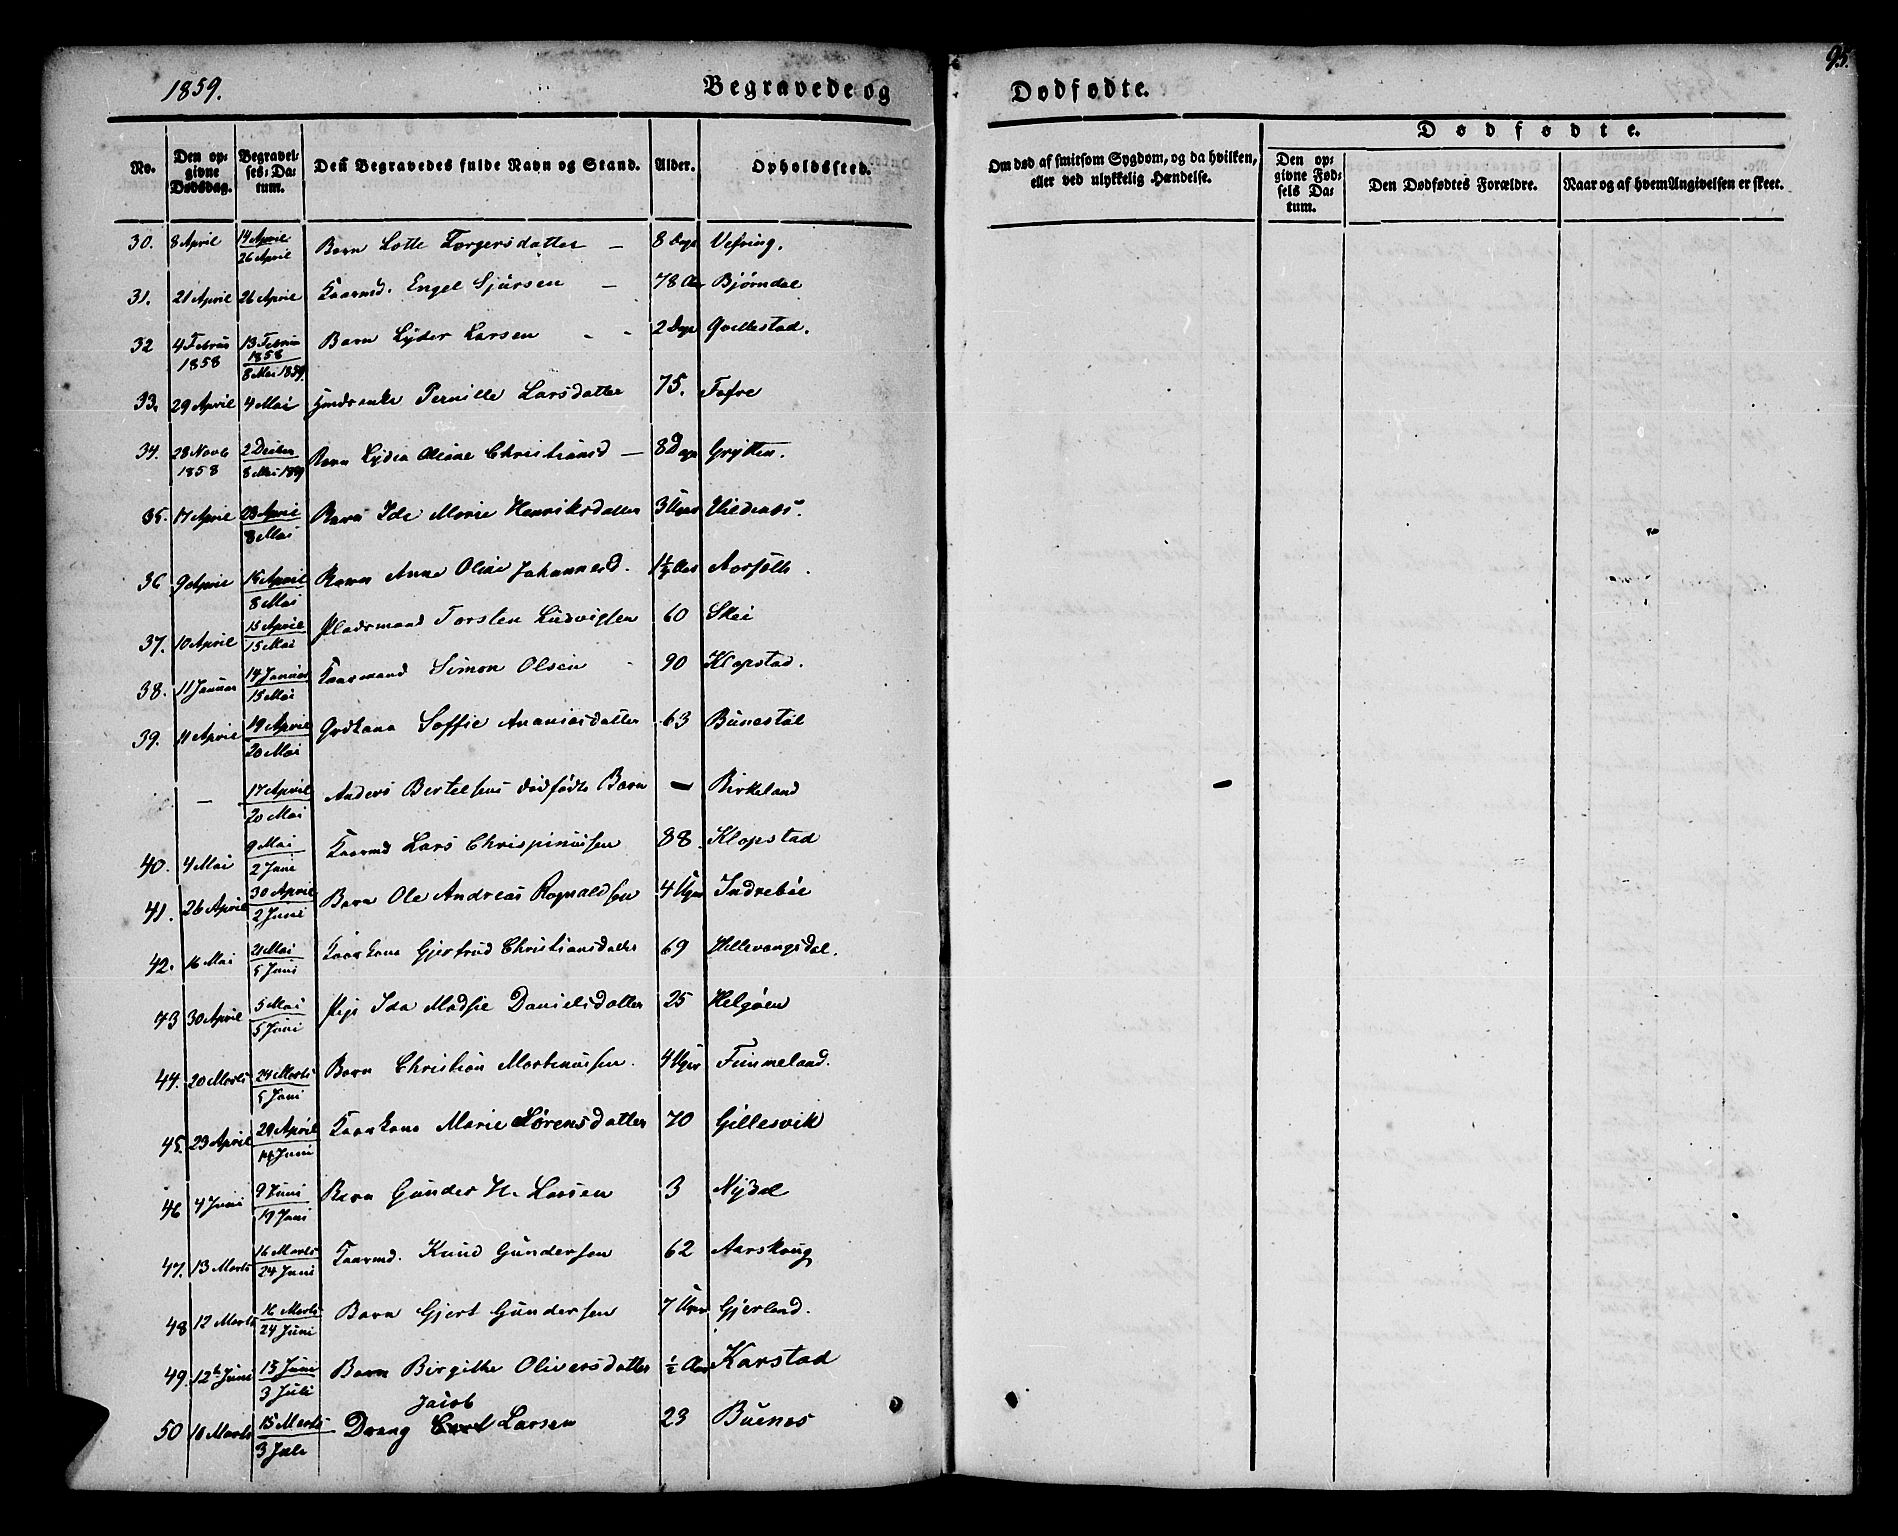 1859.
Begravede og
Dødfødte.
95.
No.
Den opgivne Dødsdag.
Begravelses-Datum.
Den Begravedes fulde Navn og Stand.
Alder.
Opholdssted.
Om død af smitsom Sygdom, og da hvilken, eller ved ulykkelig Hændelse.
Dødfødte.
Den opgivne Fødsels Datum.
Den Dødfødtes Forældre.
Naar og af hvem Angivelsen er skeet.
30. 8 April 14 April 26 April Barn Lotte Torgersdatter – 8 Dage Vefring.
31. 21 April 26 April Kaarmd. Engel Sjursen – 78 Aar Bjørndal
32 4 Februar 1858 13 Februar 1858 8 Mai 1859. Barn Lyder Larsen 2 Dage
33. 29 April 4 Mai Pernille Larsdatter 75. Tofre
34. 28 Novb 1858 2 Decbr 8 Mai 1859 Barn Lydia Oline Christiansd – 8 Dage Grytten.
35. 17 April 23 April 8 Mai Barn Ida Marie Henriksdatter 3 Uger Vildenæs.
36 9 April 15 April 8 Mai Barn Anna Oline Johannesd. 1½ Aar
37. 10 April 15 April 15 Mai Pladsmand Torsten Ludvigsen 60 Skei
38. 11 Januar 14 Januar 15 Mai Kaarmand Simon Olsen 90 Klopstad.
39. 11 April 19 April 20 Mai Grdkona Soffie Ananiasdatter 63 Bunestøl
– 17 April 20 Mai Anders Bertelsens dødfødte Barn – Birkeland
40. 4 Mai 9 Mai 2 Juni Kaarmd Lars Chrispinussen 88. Klopstad
41. 26 April 30 April 2 Juni Barn Ole Andreas Rognaldsen 4 Uger Indrebøe
42. 16 Mai 21 Mai 5 Juni Kaarkona Gjertrud Christiansdatter 69 Hellevangsdal.
43 30 April 5 Mai 5 Juni Pige Ida Madsie Danielsdatter 25 Helgøen
44. 20 Marts 24 Marts 5 Juni Barn Christian Martinussen. 4 Uger Fimmeland.
45. 23 April 29 April 14 Juni Kaarkona Marie Lorensdatter 70 Gillesvik
46 4 Juni 9 Juni 19 Juni Barn Gunder H. Larsen 3 Nydal
47. 13 Marts 16 Marts 24 Juni Kaarmd. Knud Gundersen 62 Aarskoug
48 12 Marts 16 Marts 24 Juni Barn Gjert Gundersen 7 Uger Gjerland.
49. 12te Juni 15 Juni 3 Juli Barn Birgithe Oliversdatter ½ Aar Karstad
Jacob
50 10 Marts 15 Marts 3 Juli Dreng Larsen 23 Buenes